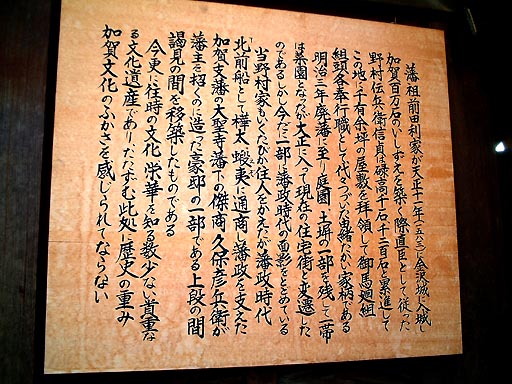 藩祖前田利家が天正十一年(一五八三)に金沢城に入城し
加賀百万石のいしずえを築く際直臣として従った
野村伝兵衛信貞は禄高千石、千二百石と累進して
この地に千有余坪の屋敷を拝領して御馬廻組
組頭各奉行職として代々つづいた由緒たかい家柄である
明治三年廃藩に至り庭園土塀の一部を残して一帯
は菜園となったが大正に入って現在の住宅街と変遷した
のであるしかし今だに一部に藩政時代の面影をとどめている
当野村家もいくたびか住人をかえたが藩政時代
北前船として樺太、蝦夷に通商し藩政を支えた
加賀支藩の大聖寺藩下の傑商、久保彦兵衛が
藩主を招くのに造った豪邸の一部である上段の間
謁見の間を移築したものである
今更に往時の文化、栄華を知る数少ない貴重な
る文化遺産であり、たたずむ此処に歴史の重み
加賀文化のふかさを感じられてならない